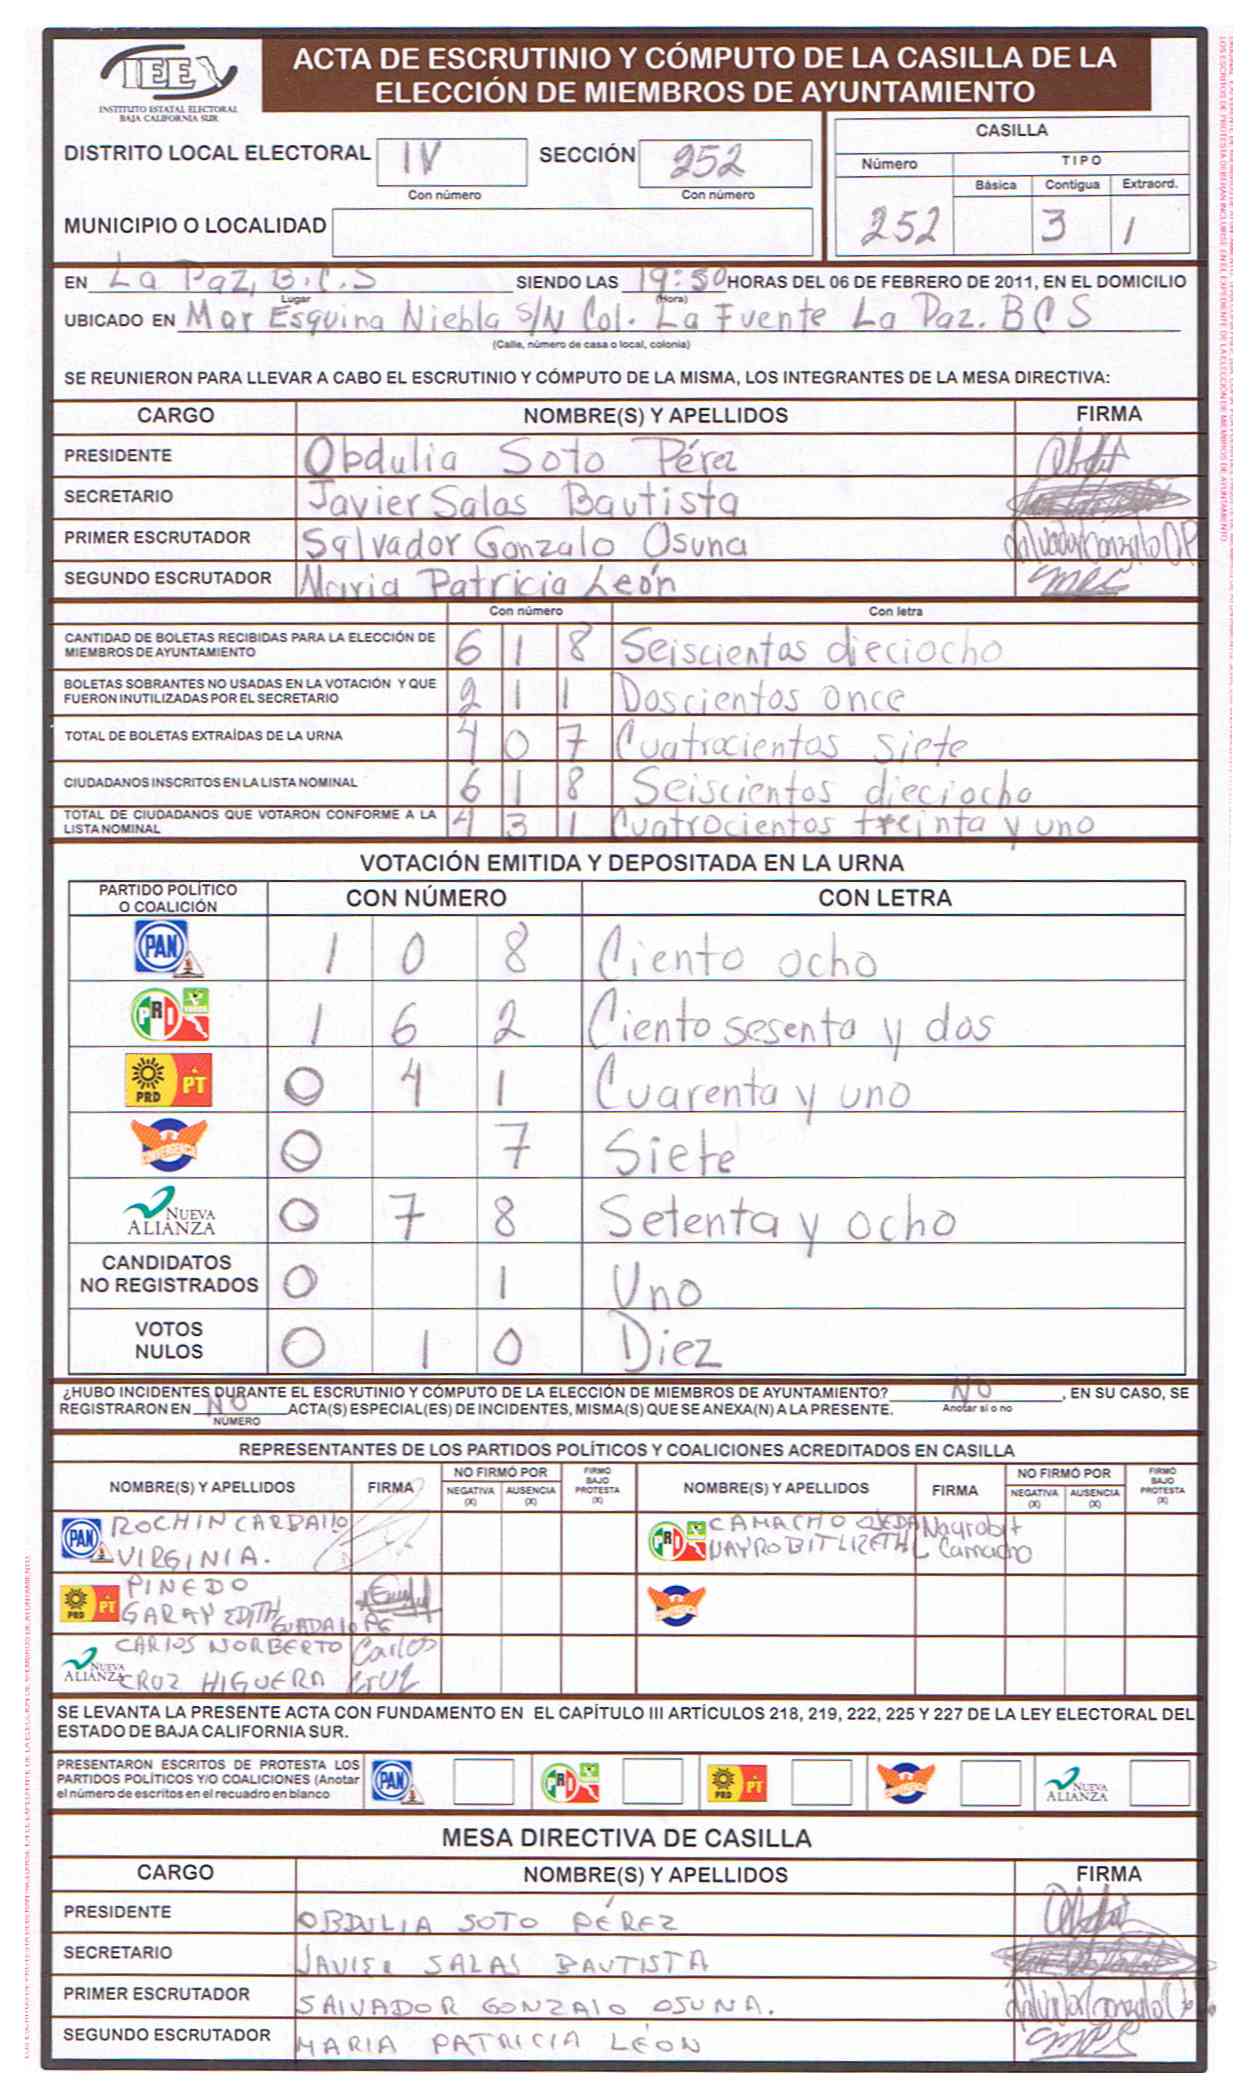 IEE
INSTITUTO ESTATAL ELECTORAL
BAJA CALIFORNIA SUR
ACTA DE ESCRUTINIO Y CÓMPUTO DE LA CASILLA DE LA
ELECCIÓN DE MIEMBROS DE AYUNTAMIENTO
DISTRITO LOCAL ELECTORAL IV SECCIÓN 252
Con número Con número
MUNICIPIO O LOCALIDAD
CASILLA
Número TIPO
Básica Contigua Extraord.
252 3 1
EN La Paz, B.C.S SIENDO LAS 19:50 HORAS DEL 06 DE FEBRERO DE 2011, EN EL DOMICILIO
Lugar (Hora)
UBICADO EN Mar Esquina Niebla S/N Col. La Fuente La Paz. BCS
(Calle, número de casa o local, colonia)
SE REUNIERON PARA LLEVAR A CABO EL ESCRUTINIO Y CÓMPUTO DE LA MISMA, LOS INTEGRANTES DE LA MESA DIRECTIVA:
CARGO NOMBRE(S) Y APELLIDOS FIRMA
PRESIDENTE Obdulia Soto Pérez
SECRETARIO Javier Salas Bautista
PRIMER ESCRUTADOR Salvador Gonzalo Osuna
SEGUNDO ESCRUTADOR Maria Patricia León
Con número Con letra
CANTIDAD DE BOLETAS RECIBIDAS PARA LA ELECCIÓN DE
MIEMBROS DE AYUNTAMIENTO 6 1 8 Seiscientos dieciocho
BOLETAS SOBRANTES NO USADAS EN LA VOTACIÓN Y QUE
FUERON INUTILIZADAS POR EL SECRETARIO 2 1 1 Doscientos once
TOTAL DE BOLETAS EXTRAÍDAS DE LA URNA 4 0 7 Cuatrocientos siete
CIUDADANOS INSCRITOS EN LA LISTA NOMINAL 6 1 8 Seiscientos dieciocho
TOTAL DE CIUDADANOS QUE VOTARON CONFORME A LA
LISTA NOMINAL 4 3 1 Cuatrocientos treinta y uno
VOTACIÓN EMITIDA Y DEPOSITADA EN LA URNA
PARTIDO POLÍTICO
O COALICIÓN CON NÚMERO CON LETRA
PAN 1 0 8 Ciento ocho
PRI 1 6 2 Ciento sesenta y dos
PRD PT 0 4 1 Cuarenta y uno
CONVERGENCIA 0 7 Siete
NUEVA ALIANZA 0 7 8 Setenta y ocho
CANDIDATOS
NO REGISTRADOS 0 1 Uno
VOTOS
NULOS 0 1 0 Diez
¿HUBO INCIDENTES DURANTE EL ESCRUTINIO Y CÓMPUTO DE LA ELECCIÓN DE MIEMBROS DE AYUNTAMIENTO? NO , EN SU CASO, SE
REGISTRARON EN NO ACTA(S) ESPECIAL(ES) DE INCIDENTES, MISMA(S) QUE SE ANEXA(N) A LA PRESENTE. Anotar sí o no
NÚMERO
REPRESENTANTES DE LOS PARTIDOS POLÍTICOS Y COALICIONES ACREDITADOS EN CASILLA
NOMBRE(S) Y APELLIDOS FIRMA NO FIRMÓ POR NEGATIVA (X) AUSENCIA (X) FIRMÓ BAJO PROTESTA (X) NOMBRE(S) Y APELLIDOS FIRMA NO FIRMÓ POR NEGATIVA (X) AUSENCIA (X) FIRMÓ BAJO PROTESTA (X)
PAN ROCHIN CARBALLO PRI CAMACHO OJEDA Nayrobit
VIRGINIA. NAYROBIT LIZETH Camacho
PRD PT PINEDO
GARAY EDITH GUADALUPE
NUEVA ALIANZA CARLOS NORBERTO Carlos
CRUZ HIGUERA Cruz
SE LEVANTA LA PRESENTE ACTA CON FUNDAMENTO EN EL CAPÍTULO III ARTÍCULOS 218, 219, 222, 225 Y 227 DE LA LEY ELECTORAL DEL
ESTADO DE BAJA CALIFORNIA SUR.
PRESENTARON ESCRITOS DE PROTESTA LOS
PARTIDOS POLÍTICOS Y/O COALICIONES (Anotar
el número de escritos en el recuadro en blanco
PAN PRI PRD PT CONVERGENCIA NUEVA ALIANZA
MESA DIRECTIVA DE CASILLA
CARGO NOMBRE(S) Y APELLIDOS FIRMA
PRESIDENTE OBDULIA SOTO PÉREZ
SECRETARIO JAVIER SALAS BAUTISTA
PRIMER ESCRUTADOR SALVADOR GONZALO OSUNA.
SEGUNDO ESCRUTADOR MARIA PATRICIA LEÓN